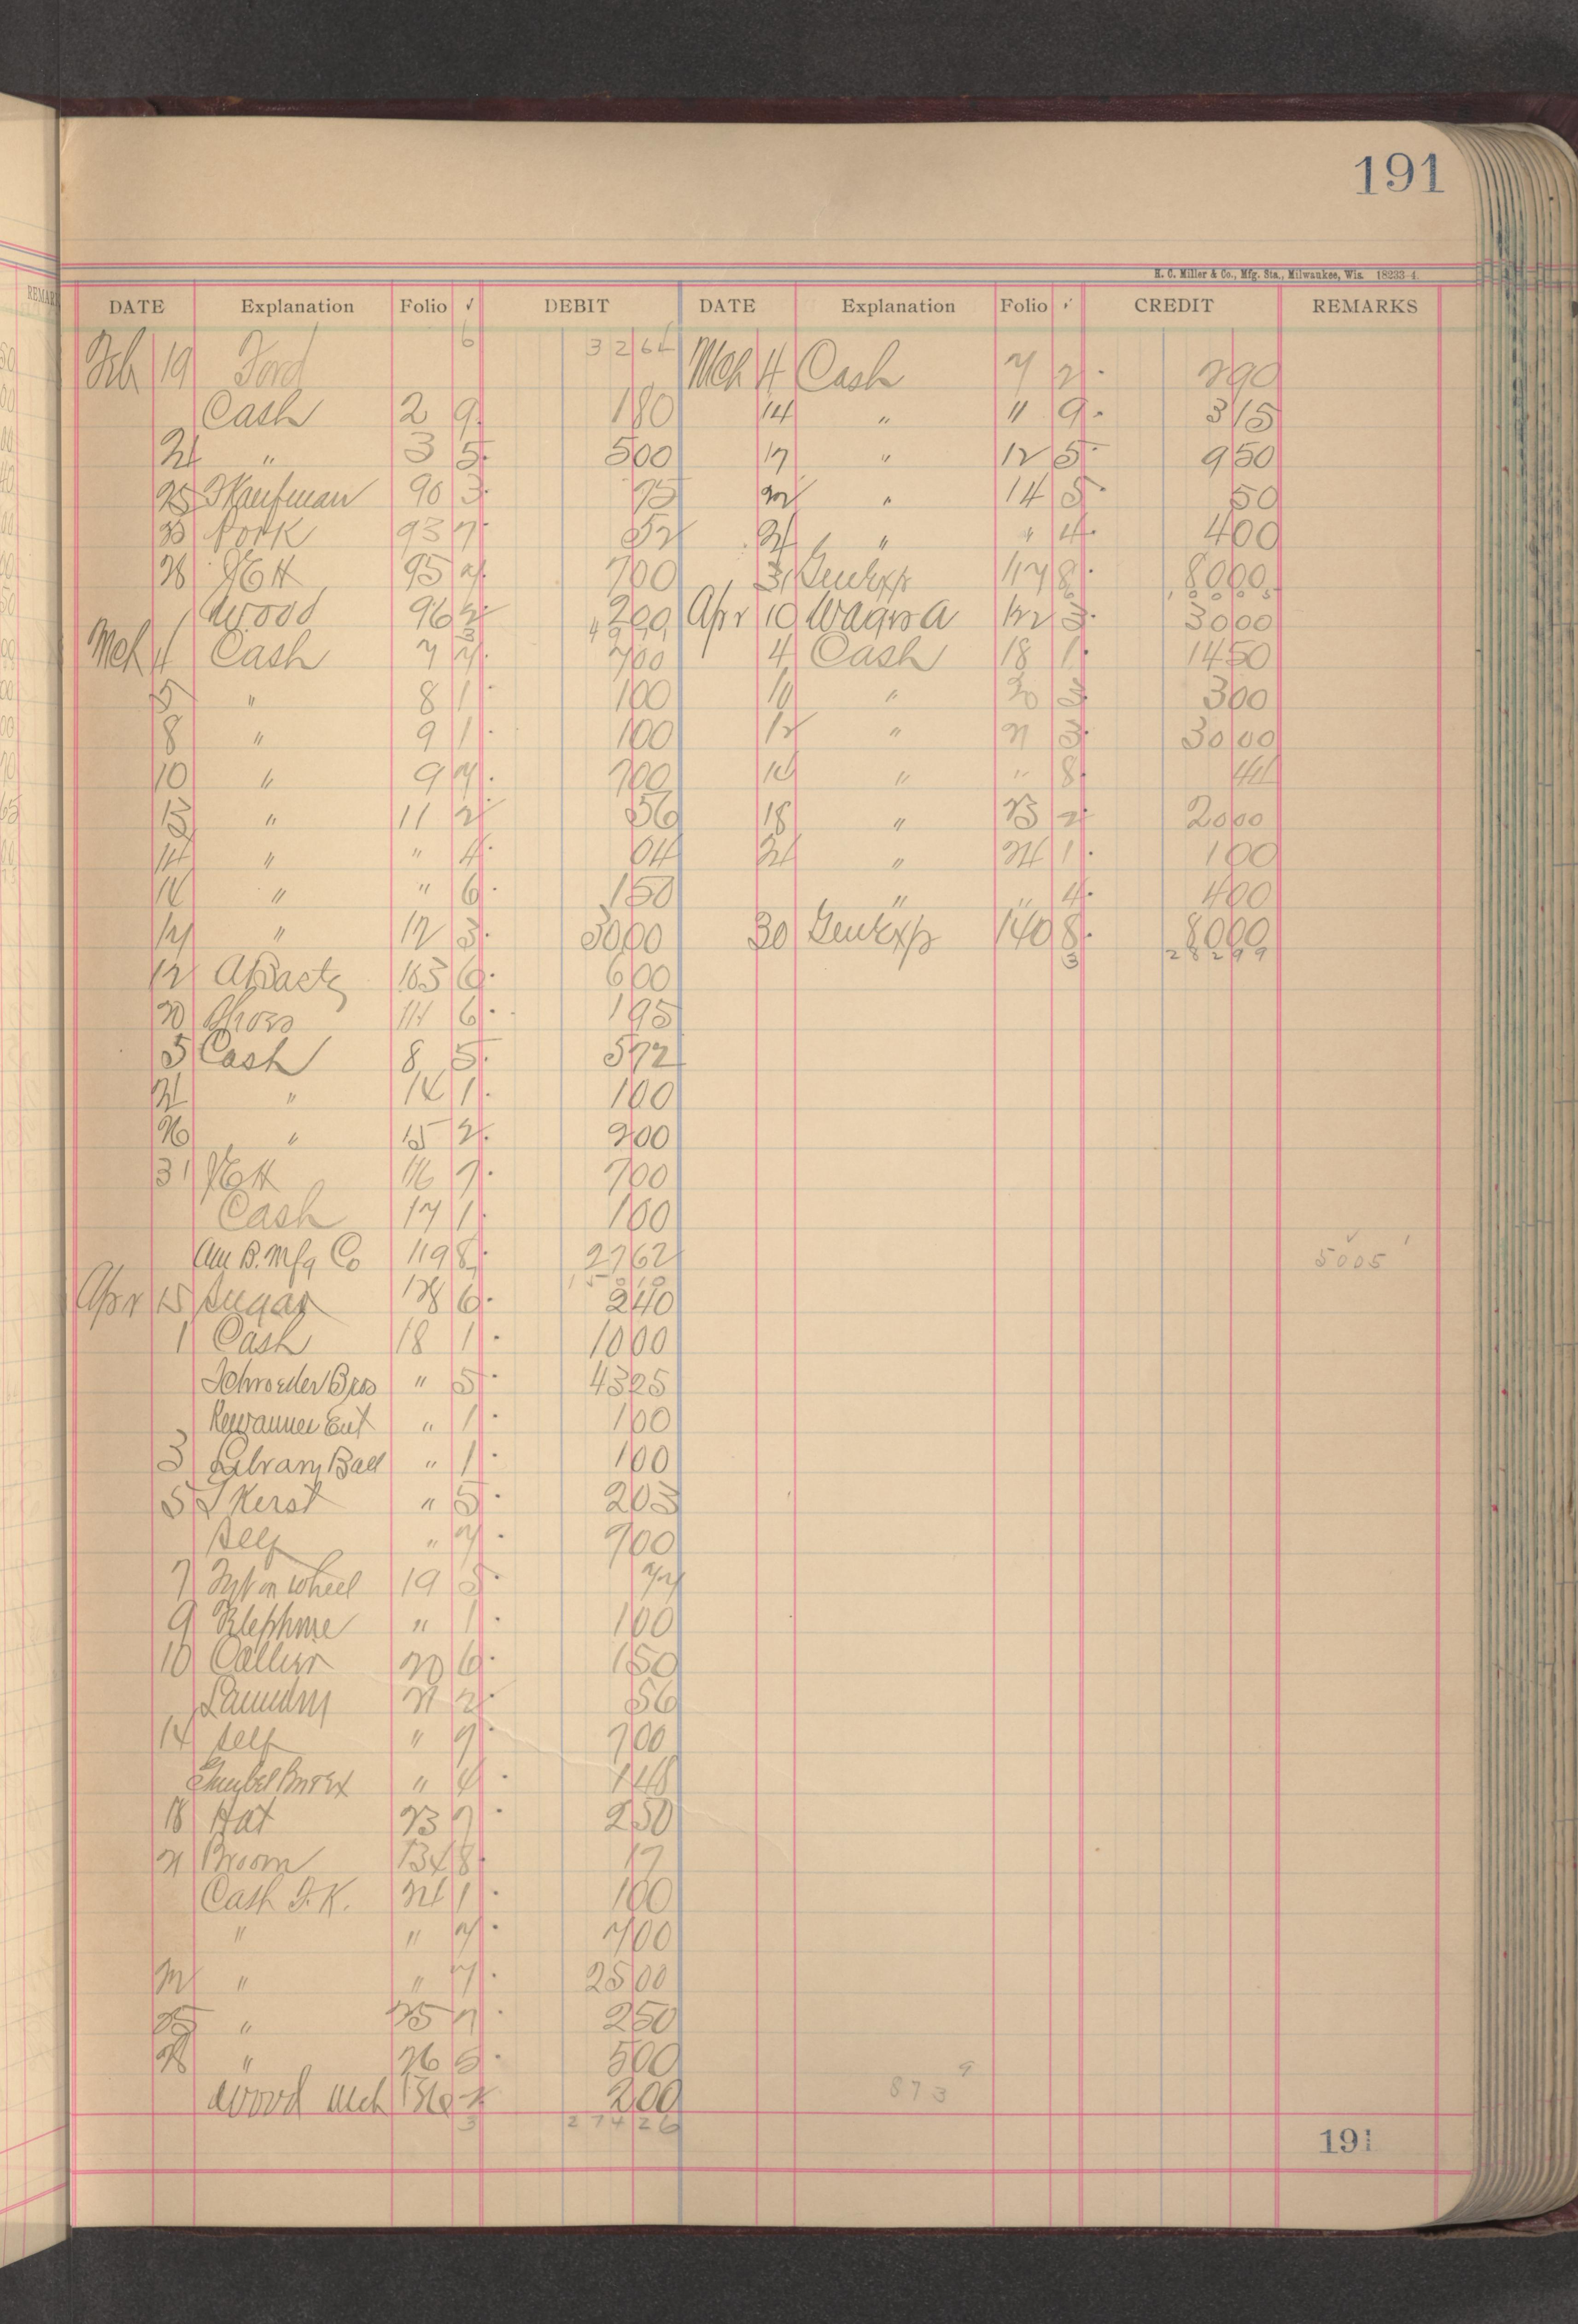 191
H. C. Miller & Co., Mfg. Sta., Milwaukee, Wis. 18233-4.
DATE Explanation Folio √ DEBIT DATE Explanation Folio √ CREDIT REMARKS
6 3264
Feb 19 Ford Mch 4 Cash 7 2 290
Cash 2 9 180 14 " " 9 315
24 " 3 5 500 17 " 12 5 950
25 Kaufman 90 3 75 22 " 14 5 50
Pork 93 7 52 24 " " 4 400
26 95 7 700 31 Genl Exp 117 8 8000
Wood 96 2 200 Apr 10 122 3 3000
Mch 4 Cash 7 7 700 4 Cash 18 1 1450
5 " 8 1 100 " 20 3 300
8 " 9 1 100 12 " 21 3 3000
10 " 9 7 700 14 " " 8 44
13 " 11 2 56 18 " 23 2 2000
14 " " 4 04 24 " 24 1 100
14 " " 6 150 " " 4 400
17 " 12 3 3000 30 Genl Exp 140 8 8000
3 28299
12 103 6 600
20 Shoes 111 6 195
5 Cash 8 5 572
24 " 14 1 100
26 " 15 2 200
31 116 7 700
Cash 17 1 100
Am B. Mfg Co 119 8 2762 5005
Apr 15 Sugar 128 6 240
1 Cash 18 1 1000
Schroeder Bros " 5 4325
Kewaunee Ent " 1 100
3 Library Ball " 1 100
5 Kerst " 5 203
Self " 7 700
7 on wheel 19 5
9 Telephone " 1 100
10 20 6 150
Laundry 21 2 56
14 Self " 7 700
" 4 148
18 Hat 23 7 250
21 Broom 134 8 17
Cash F.K. 24 1 100
" " 7 700
22 " " 7 2500
25 " 25 7 250
" 26 5 500
9
873
Wood Mch 136 2 200
3 27426
191